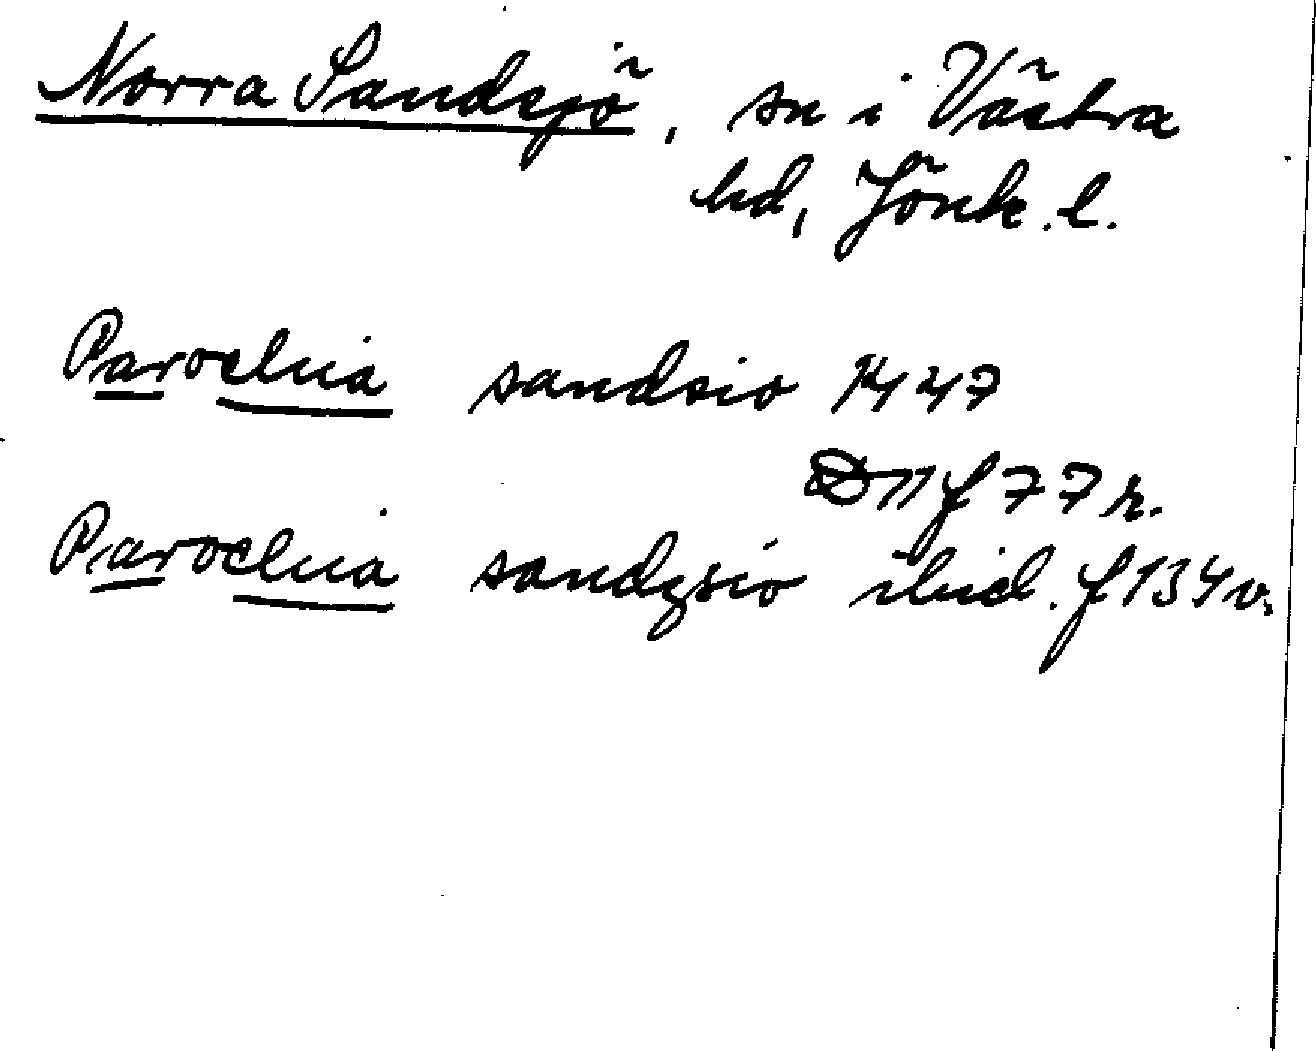 Norra Sandsjö, sn i Västra
hd, Jönk. l.
Parochia sandsio 1447
D 11 f 77 r.
Parochia sandzsio ibid. f 134 v.